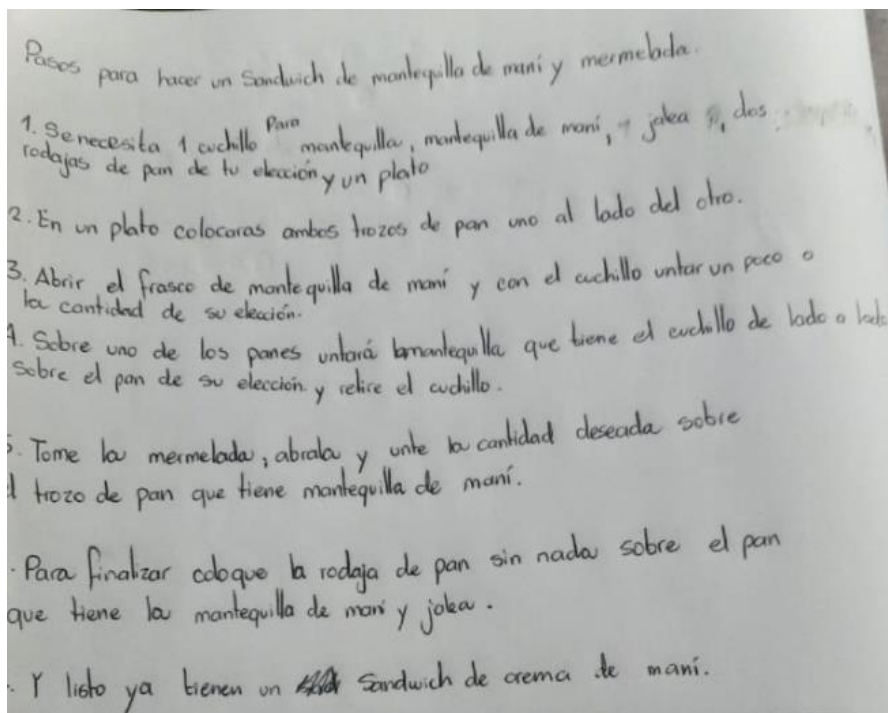 Pasos para hacer un Sandwich de mantequilla de maní y mermelada.
1. Se necesita 1 cuchillo Para mantequilla, mantequilla de maní, jalea, dos
rodajas de pan de tu elección y un plato
2. En un plato colocaras ambos trozos de pan uno al lado del otro.
3. Abrir el frasco de mantequilla de maní y con el cuchillo untar un poco o
la cantidad de su elección.
4. Sobre uno de los panes untará la mantequilla que tiene el cuchillo de lado a lado
sobre el pan de su elección y retire el cuchillo.
5. Tome la mermelada, abrala y unte la cantidad deseada sobre
l trozo de pan que tiene mantequilla de maní.
. Para finalizar coloque la rodaja de pan sin nada sobre el pan
que tiene la mantequilla de maní y jalea.
. Y listo ya tienen un Sandwich de crema de maní.